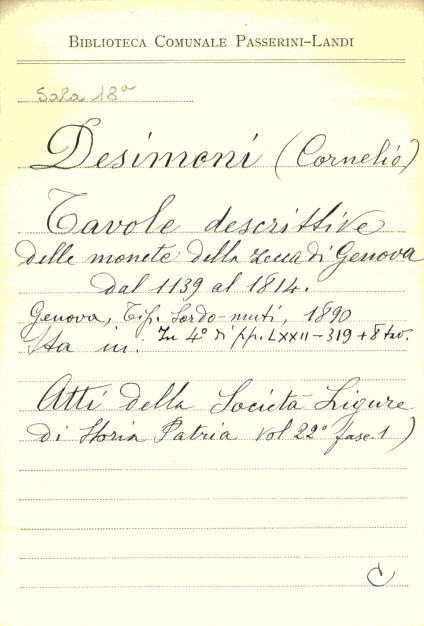 BIBLIOTECA COMUNALE PASSERINI-LANDI
Sala 18ª
Desimoni (Cornelio)
Tavole descrittive
delle monete della zecca di Genova
dal 1139 al 1814.
Genova, Tip. Sordo-muti, 1890
Sta in: In 4° di pp. LXXII-319 + 8 tav.
Atti della Società Ligure
di Storia Patria vol 22° fasc. 1)
C